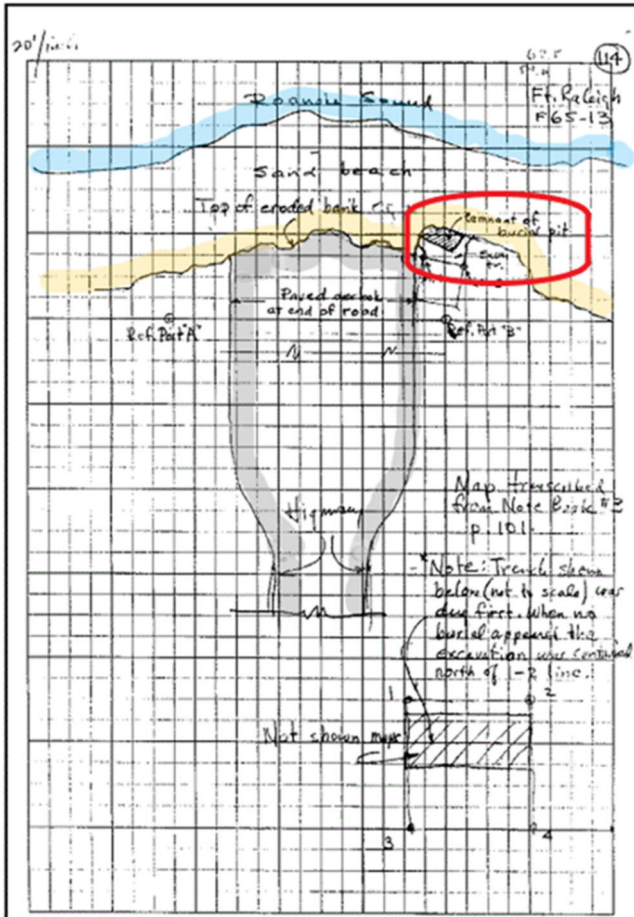 20'/inch
114
Ft. Raleigh
F65-13
Roanoke Sound
Sand beach
Top of eroded bank
Remnant of
burial pit
Paved
at end of road
Ref. Point "A"
Ref. Point "B"
Map transcribed
from Note Book #3
p. 101-
Highway
*Note: Trench shown
below (not to scale) was
dug first. When no
burial appeared the
excavation was continued
north of 1-2 line.
1
2
Not shown
3
4